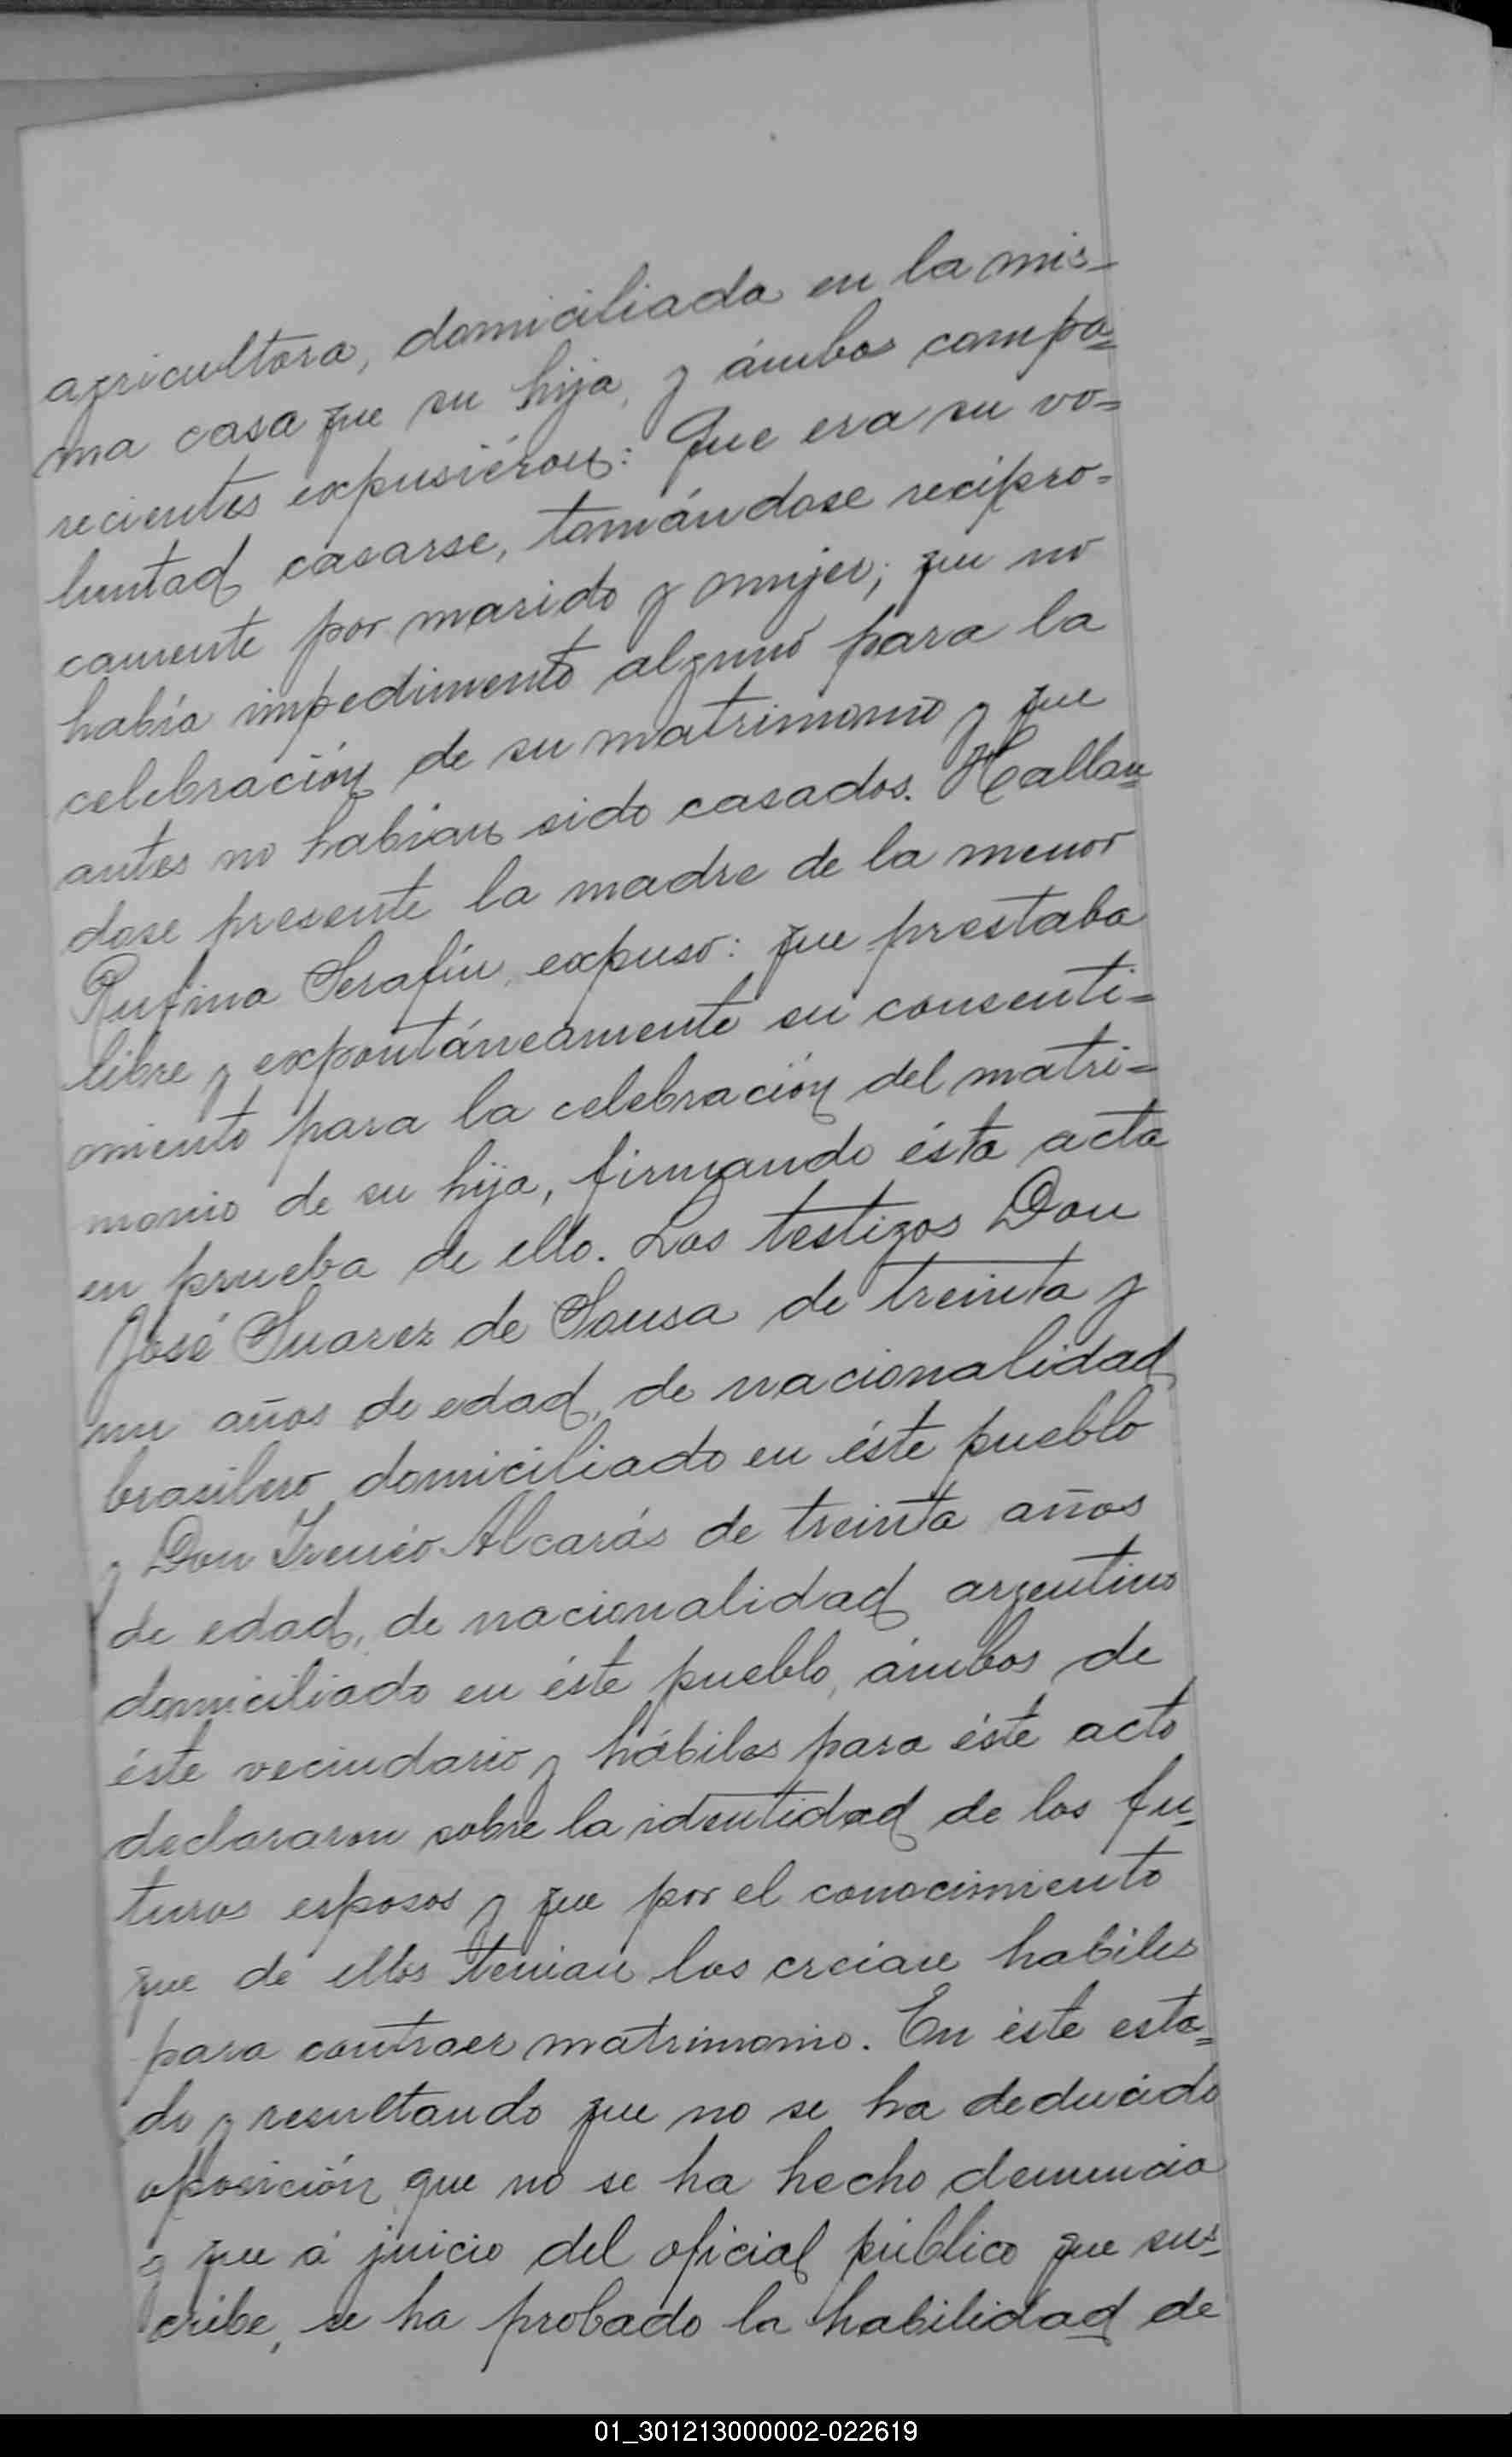 agricultora, domiciliada en la mis-
ma casa que su hija, y ámbos compa=
recientes expusiéron: Que era su vo=
luntad casarse, tomándose recipro=
camente por marido y mujer; que no
había impedimento alguno para la
celebración de su matrimonio y que
antes no habían sido casados. Hallan=
dose presente la madre de la menor
Rufina Serafín, expuso: que prestaba
libre y expontáneamente su consenti=
miento para la celebración del matri=
monio de su hija, firmando ésta acta
en prueba de ello. Los testigos Don
José Suarez de Sousa de treinta y
un años de edad, de nacionalidad
brasilero domiciliado en éste pueblo
y Don Irenéo Alcarás de treinta años
de edad, de nacionalidad argentino
domiciliado en éste pueblo, ámbos de
éste vecindario y hábiles para éste acto
declararon sobre la identidad de los fu=
turos esposos y que por el conocimiento
que de ellos tenian los creian habiles
para contraer matrimonio. En éste esta=
do y resultando que no se ha deducido
oposición, que no se ha hecho denuncia
y que á juicio del oficial público que sus=
cribe, se ha probado la habilidad de
01_301213000002-022619